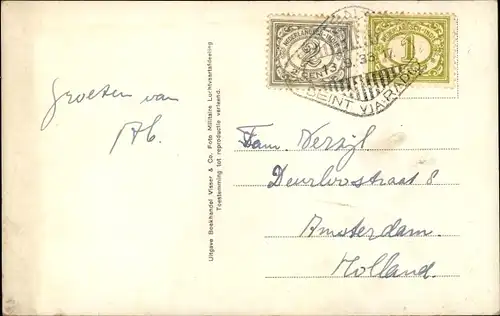 NEDERLANDSCH-INDIË
2
CENTS
NEDERLANDSCH-INDIË
1
SEINT VIA RADIO
Groeten van
Ab.
Uitgave Boekhandel Visser & Co. Foto Militaire Luchtvaartafdeeling
Toestemming tot reproductie verleend.
Fam. Verzijl
Deurloostraat 8
Amsterdam.
Holland.